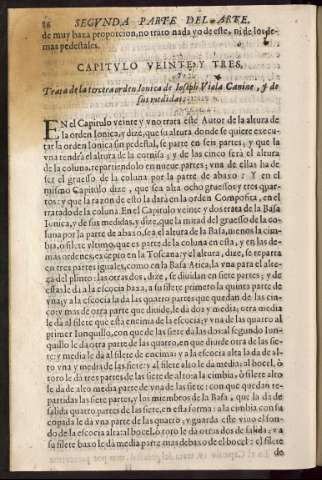 86 SEGVNDA PARTE DEL ARTE,
de muy baxa proporcion, no trato nada yo de este, ni de los de-
mas pedestales.
CAPITVLO VEINTE Y TRES,
Trata de la tercera orden Ionica de Ioseph Viola Canine, y de
sus medidas.
EN el Capitulo veinte y vno trata este Autor de la altura de
la orden Ionica, y dize, que su altura donde se quiere execu-
tar la orden Ionica sin pedestal, se parte en seis partes; y que la
vna tendrá el altura de la cornisa; y de las cinco será el altura
de la coluna, repartiendolo en nueue partes; vna de ellas ha de
ser el gruesso de la coluna por la parte de abaxo: Y en el
mismo Capitulo dize, que sea alta ocho gruessos y tres quar-
tos: y que la razon de esto la dará en la orden Composita, en el
tratado de la coluna. En el Capitulo veinte y dos trata de la Basa
Ionica, y de sus medidas, y dize, que la mitad del gruesso de la co-
luna por la parte de abaxo, sea el altura de la Basa, menos la cim-
bia, ò filete vltimo, que es parte de la coluna en esta, y en las de-
mas ordenes, excepto en la Toscana: y el altura, dize, se reparta
en tres partes iguales, como en la Basa Atica, la vna para el altu-
ra del plinto: las otras dos, dize, se diuidan en siete partes; y de
estas le dà a la escocia baxa, a su filete primero la quinta parte de
vna; y a la escocia la dà las quatro partes que quedan de las cin-
co; y mas de otra parte que diuide, le dà dos y media; otra media
le dà al filete que està encima de la escocia; y vna de las quatro al
primer Iunquillo, con que de las siete dà las dos: al segundo Iun-
quillo le dà otra parte de las quatro, en que diuide otra de las sie-
te: y media le dà al filete de encima: y a la escocia alta la dà de al-
to vna y media de las siete: y al filete alto le dà media: al bocel, ò
toro le dà tres partes de las siete de alto: a la cimbia, ò filete alto
le dà de alto media parte de vna de las siete: con que quedan re-
partidas las siete partes, y los miembros de la Basa, que la dà de
salida quatro partes de las siete, en esta forma: a la cimbia con su
copada le dà vna parte de las quatro; y guarda este viuo el fon-
do de la escocia alta: al bocel, ò toro le dà otras dos de salida: y a
su filete baxo le dà media parte mas debaxo de el bocel: el filete
de